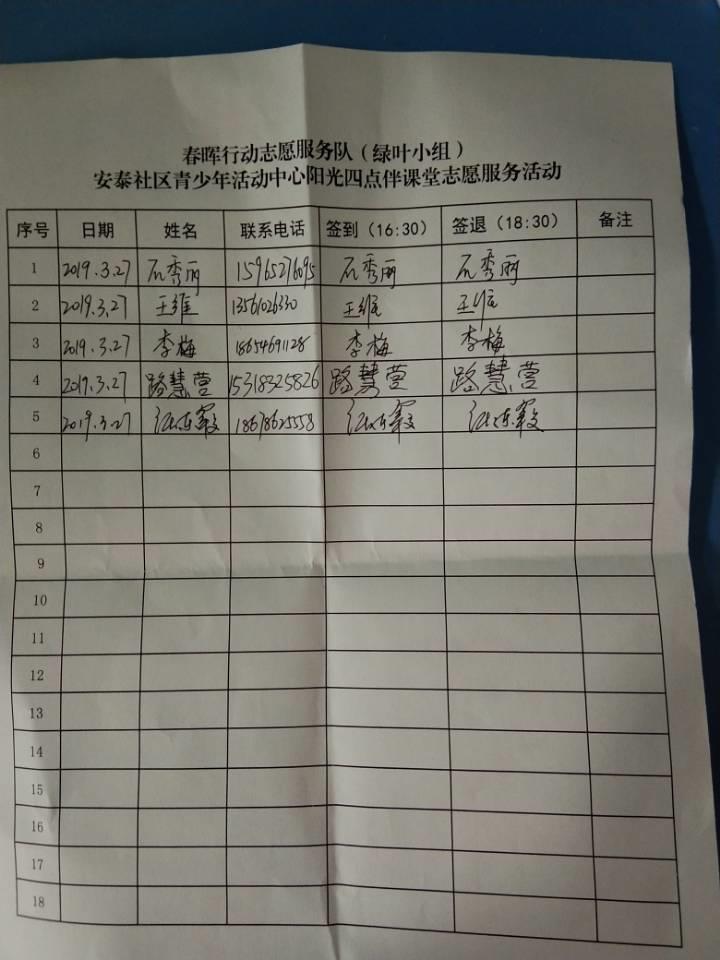 春晖行动志愿服务队（绿叶小组）
安泰社区青少年活动中心阳光四点伴课堂志愿服务活动
序号 日期 姓名 联系电话 签到（16:30） 签退（18:30） 备注
1 2019.3.27 石秀丽 15965276095 石秀丽 石秀丽
2 2019.3.27 王维 13561026330 王维 王维
3 2019.3.27 李梅 18654691128 李梅 李梅
4 2019.3.27 路慧莹 15318325826 路慧莹 路慧莹
5 2019.3.27 18678625558
6
7
8
9
10
11
12
13
14
15
16
17
18